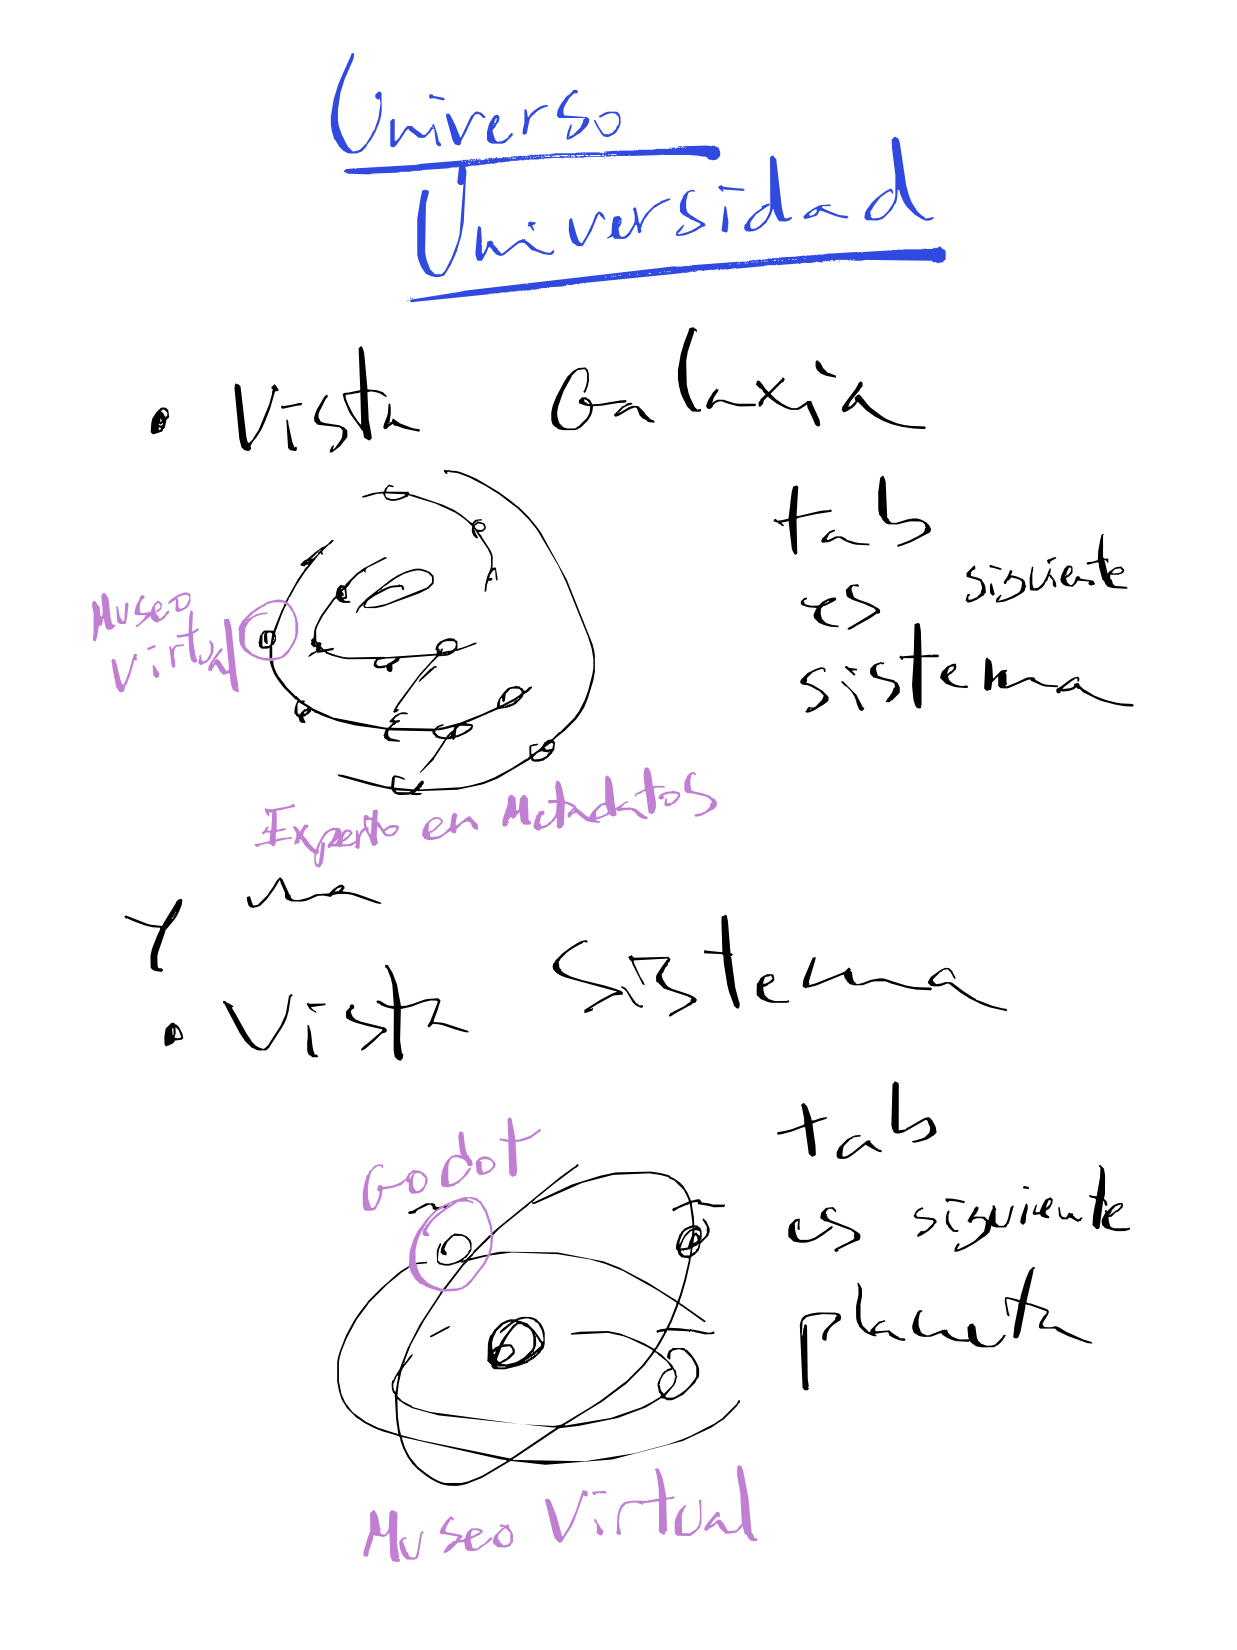 Universo
Universidad
• Vista Galaxia
tab
es siguiente
sistema
Museo
Virtual
Experto en Metadatos
Y una
• Vista Sistema
tab
es siguiente
planeta
Godot
Museo Virtual